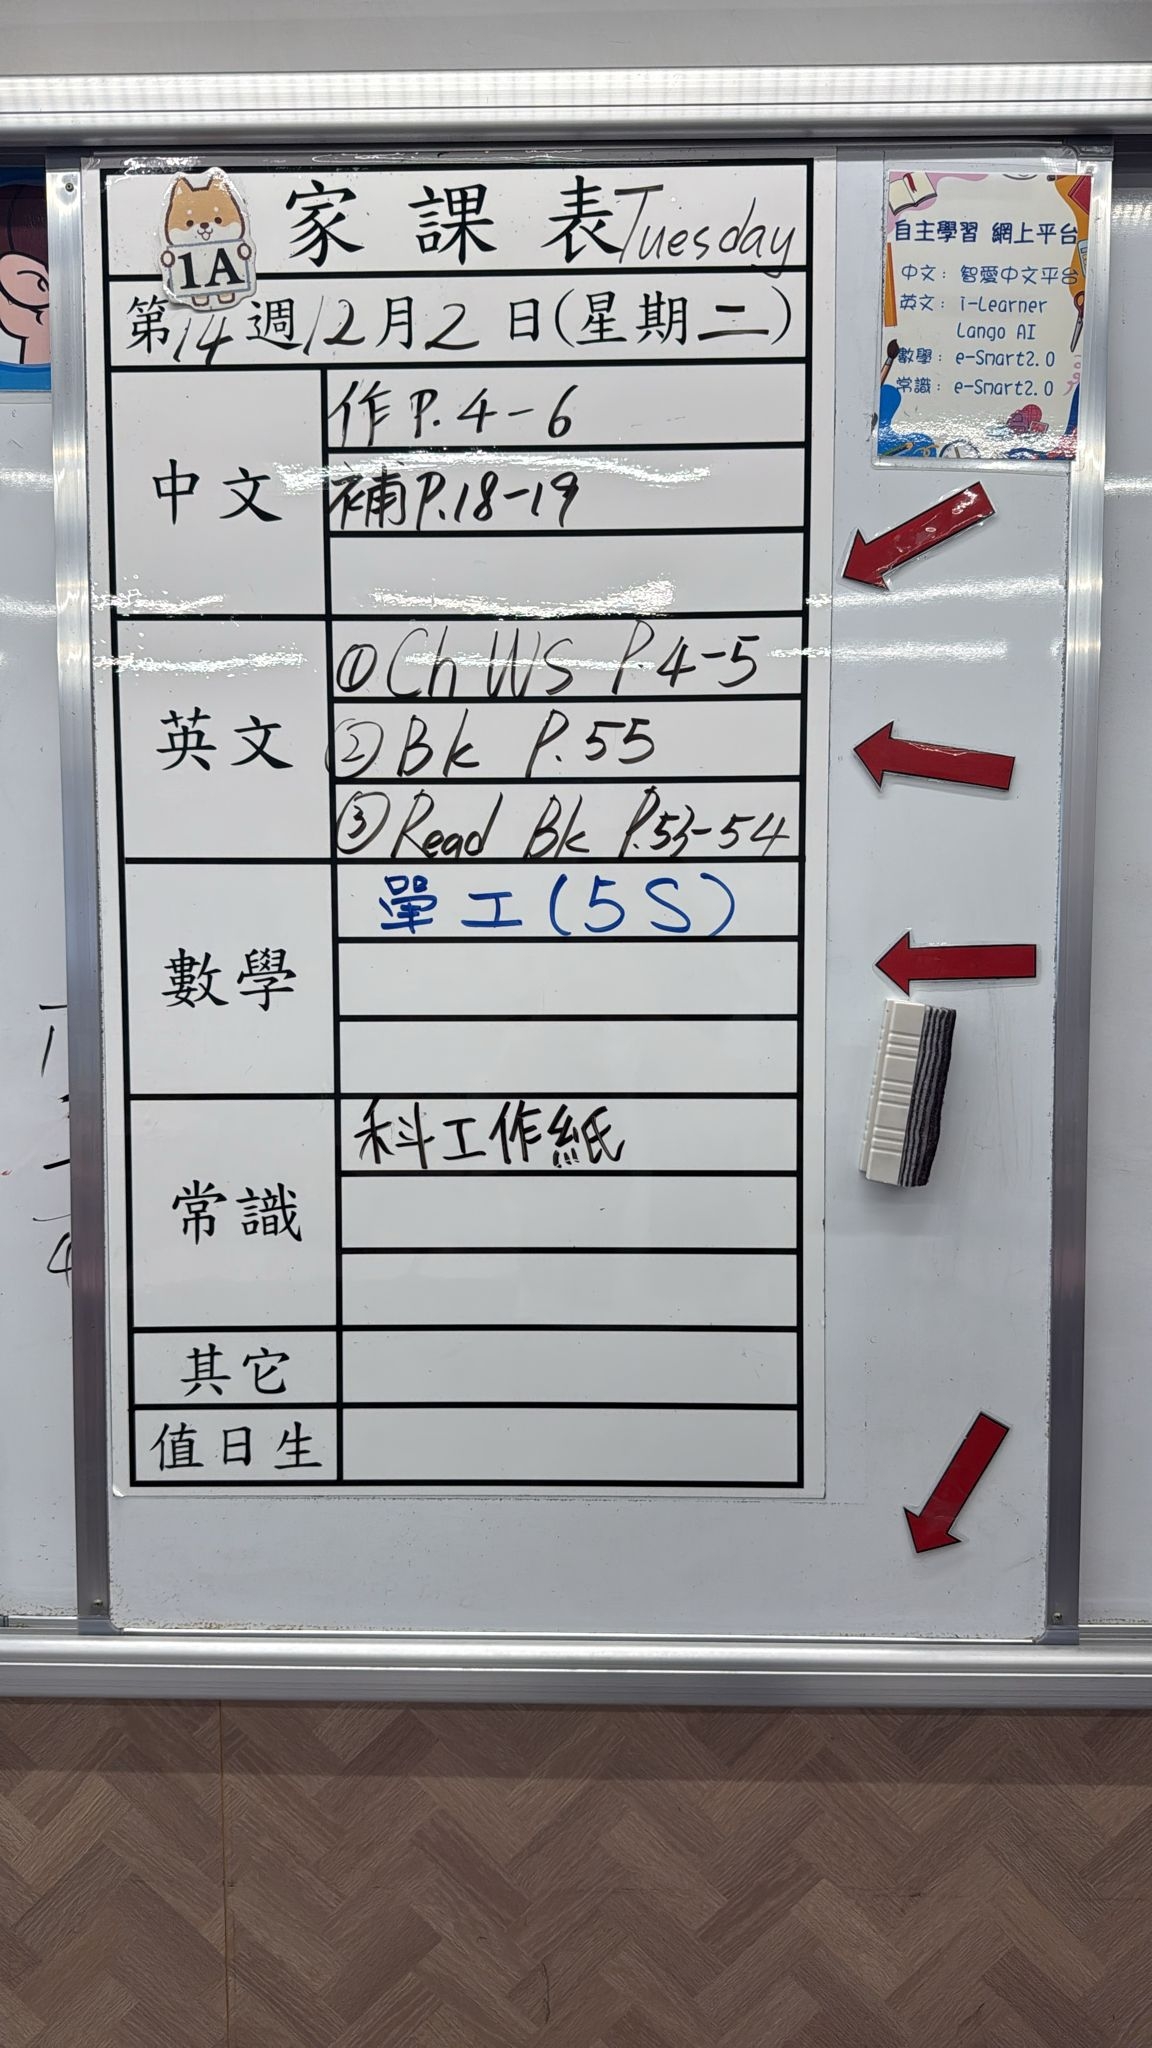 家課表 Tuesday
1A
第14週12月2日(星期二)
中文
作P.4-6
補P.18-19
英文
①Ch WS P.4-5
②Bk P.55
③Read Bk P.53-54
數學
單工(5S)
常識
科工作紙
其它
值日生
自主學習 網上平台
中文：智愛中文平台
英文：i-Learner
Lango AI
數學：e-Smart2.0
常識：e-Smart2.0